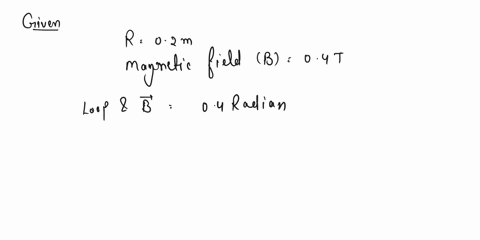 Given
R = 0.2 m
Magnetic field (B) = 0.4 T
Loop & B⃗ : 0.4 Radian